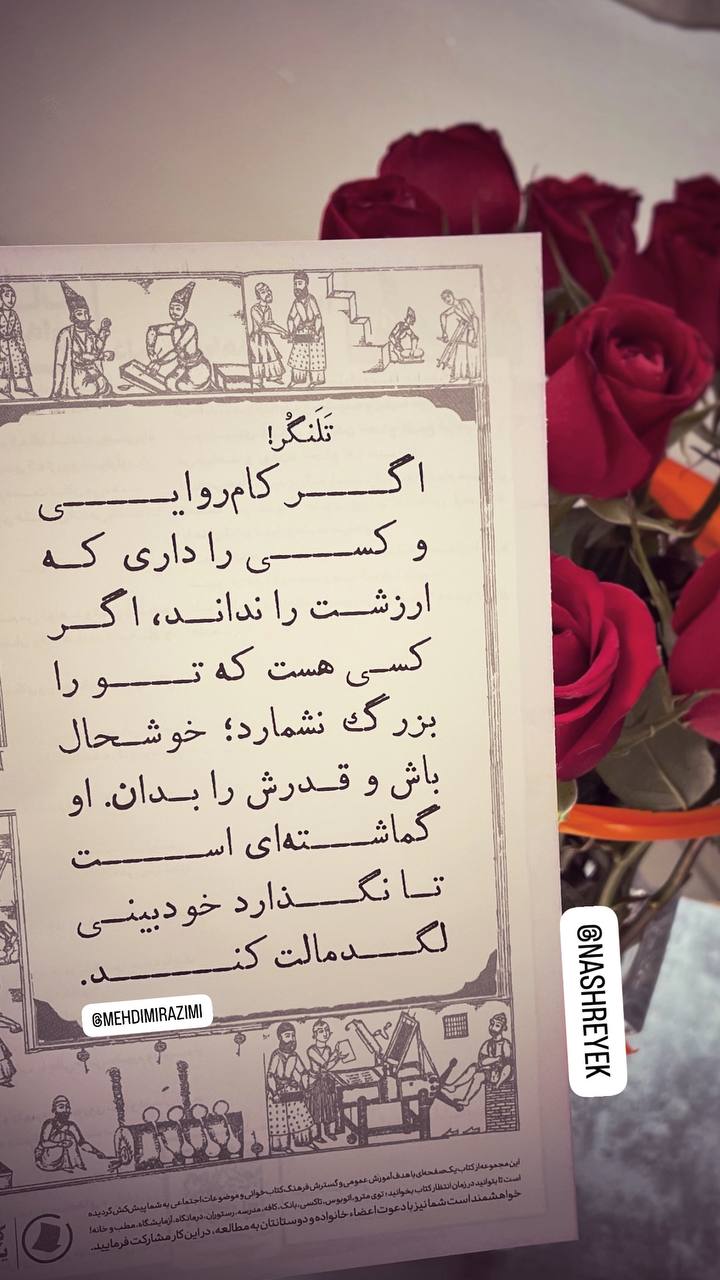 تَلَنگُر!
اگر کام‌روایی
و کسی را داری که
ارزشت را نداند، اگر
کسی هست که تو را
بزرگ نشمارد؛ خوشحال
باش و قدرش را بدان. او
گماشته‌ای است
تا نگذارد خودبینی
لگدمالت کند.
@MEHDIMIRAZIMI
@NASHREYEK
این مجموعه از کتاب یک‌صفحه‌ای با هدف آموزش عمومی و گسترش فرهنگ کتاب‌خوانی و موضوعات اجتماعی به شما پیش‌کش گردیده
است تا بتوانید در زمان انتظار کتاب بخوانید؛ توی مترو، اتوبوس، تاکسی، بانک، کافه، مدرسه، رستوران، درمانگاه، آزمایشگاه، مطب و خانه!
خواهشمند است شما نیز با دعوت اعضاء خانواده و دوستانتان به مطالعه، در این کار مشارکت فرمایید.